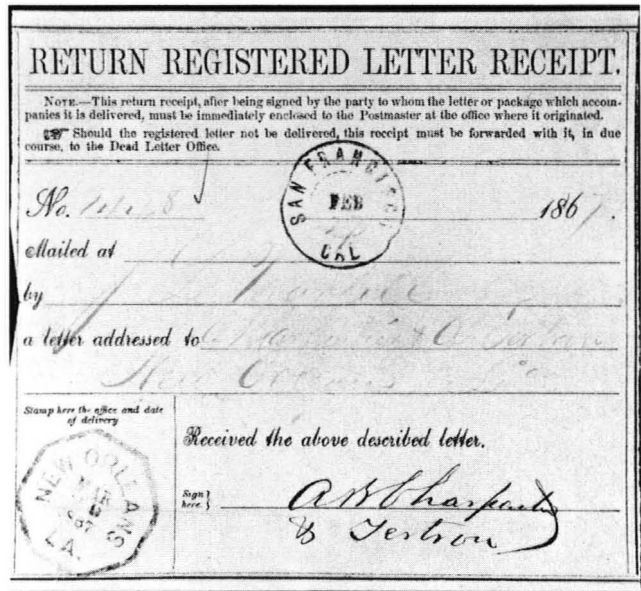 RETURN REGISTERED LETTER RECEIPT.
NOTE.—This return receipt, after being signed by the party to whom the letter or package which accom-
panies it is delivered, must be immediately enclosed to the Postmaster at the office where it originated.
☞ Should the registered letter not be delivered, this receipt must be forwarded with it, in due
course, to the Dead Letter Office.
SAN FRANCISCO
FEB
CAL
No. 1867.
Mailed at
by
a letter addressed to
New Orleans La
Stamp here the office and date
of delivery
NEW ORLEANS
MAR
LA.
Received the above described letter.
Sign
here.
A B Charpantier
& Tertrou